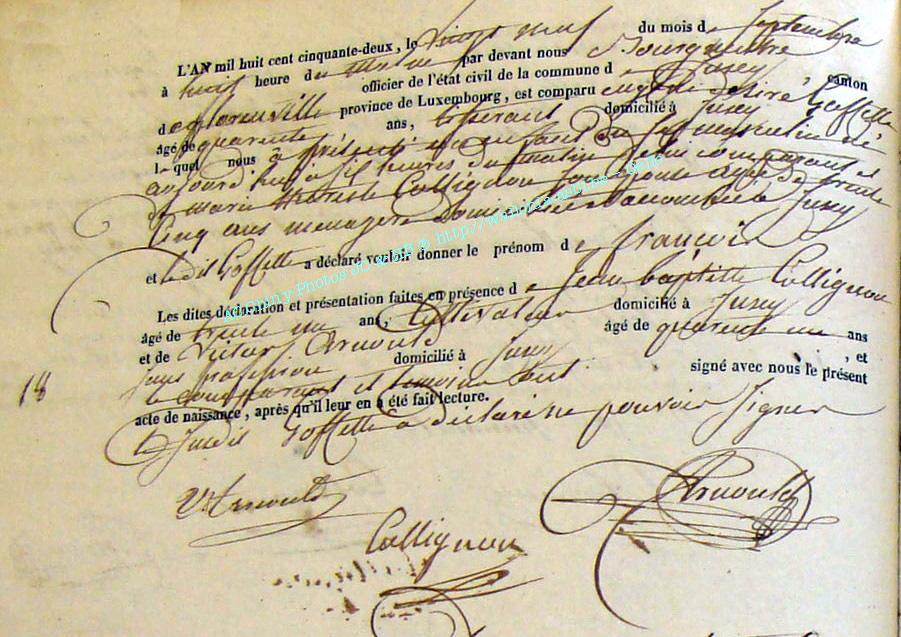 L'AN mil huit cent cinquante-deux, le vingt neuf du mois de septembre
à huit heure du matin par devant nous Bourgmestre
officier de l'état civil de la commune de Jusey canton
de florenville province de Luxembourg, est comparu eugène désiré Goffette
âgé de quarante ans, tisserant domicilié à Jusey
lequel nous à présenté un enfant du sexe masculin né
aujourd'hui à six heures du matin de lui comparant et
de marie Collignon son épouse agée de trente
cinq ans menagère domiciliée Jusey
et le dit Goffette a déclaré vouloir donner le prénom de françois
Les dites déclaration et présentation faites en présence de Jean baptiste Collignon
âgé de trente un ans, Cultivateur domicilié à Jusey
et de Victor Arnould âgé de quarante un ans
sans profession domicilié à Jusey , et
le comparant et temoins ont signé avec nous le présent
acte de naissance, après qu'il leur en a été fait lecture.
le susdit Goffette a déclaré ne pouvoir signer
18
V. Arnould
Arnould
Collignon